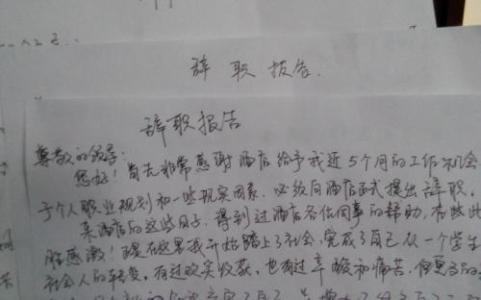 辞职报告.
辞职报告
尊敬的领导:
您好!首先非常感谢酒店给予我近5个月的工作机会
于个人职业规划和一些现实因素,必须向酒店正式提出辞职。
来酒店的这些日子,得到过酒店各位同事的帮助,
感激!在这里我开始踏上了社会,完成了自己从一个学生
社会人的转变,有过欢笑收获,也有过辛酸和痛苦,但更多的